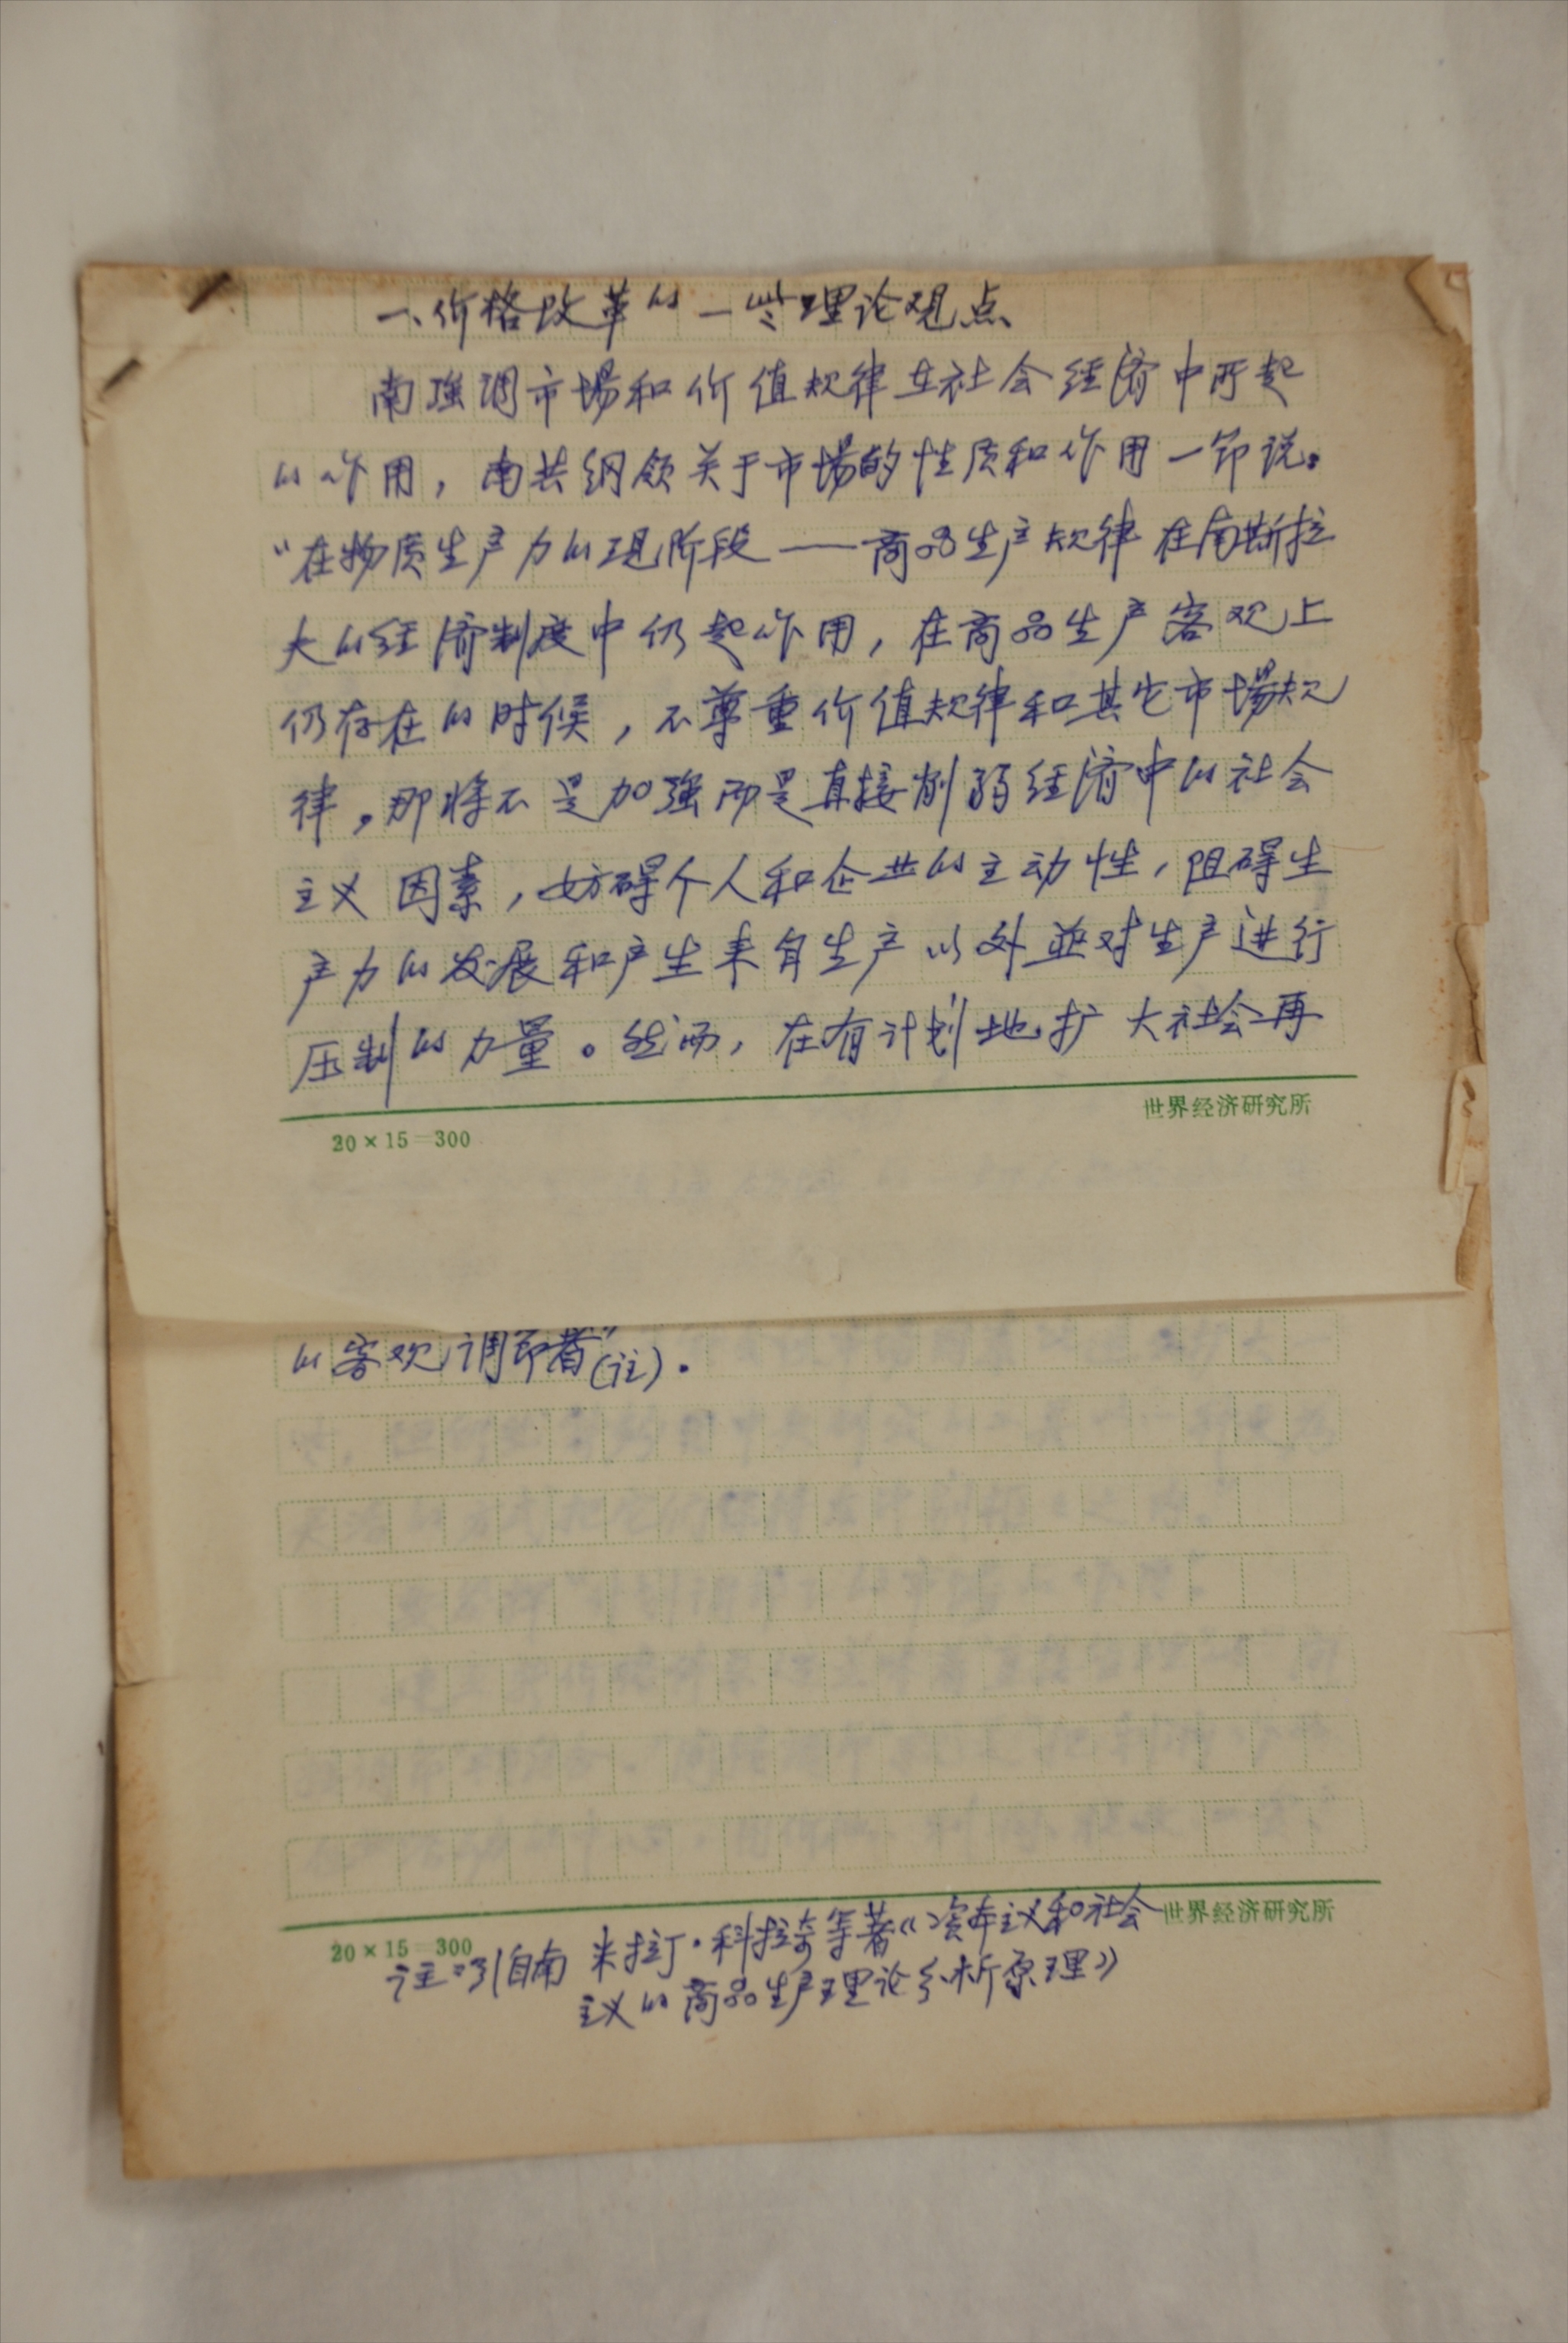 一、价格改革的一些理论观点
南强调市場和价值规律在社会经济中所起
的作用，南共纲领关于市場的性质和作用一节说：
“在物质生产力的现阶段——商品生产规律在南斯拉
夫的经济制度中仍起作用，在商品生产客观上
仍存在的时候，不尊重价值规律和其它市場规
律，那将不是加强而是直接削弱经济中的社会
主义因素，妨碍个人和企业的主动性，阻碍生
产力的发展和产生来自生产以外並对生产进行
压制的力量。然而，在有计划地扩大社会再
世界经济研究所
20×15=300
的客观调节者”(注)．
世界经济研究所
20×15=300
注：引自南 米拉丁·科拉奇等著《资本主义和社会
主义的商品生产理论分析原理》